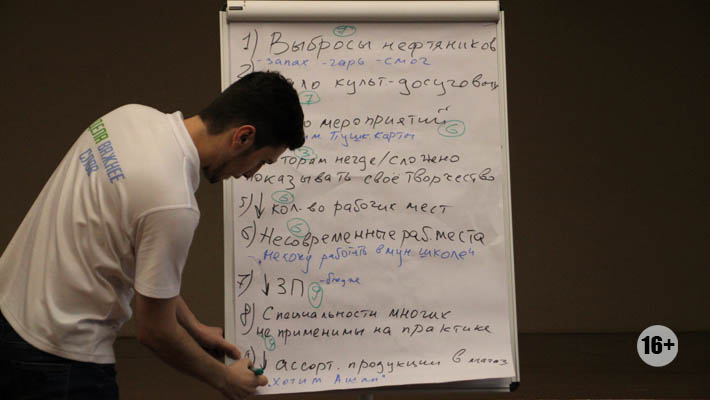 1) Выбросы нефтяников
7
-запах -гарь -смог
2) культ-досуговых
7
мероприятий
Пушк. карты
6
3
негде/сложно
показывать своё творчество
5) ↓ кол-во рабочих мест
6
6) Несовременные раб. места
„Не хочу работать в мун. школе"
7) ↓ ЗП -бюдж
9
8) Специальности многих
не применимы на практике
8
9) ↓ ассорт. продукции в магаз
„Хотим Ашан"
ДЕЛА ВАЖНЕЕ
СЛОВ
16+